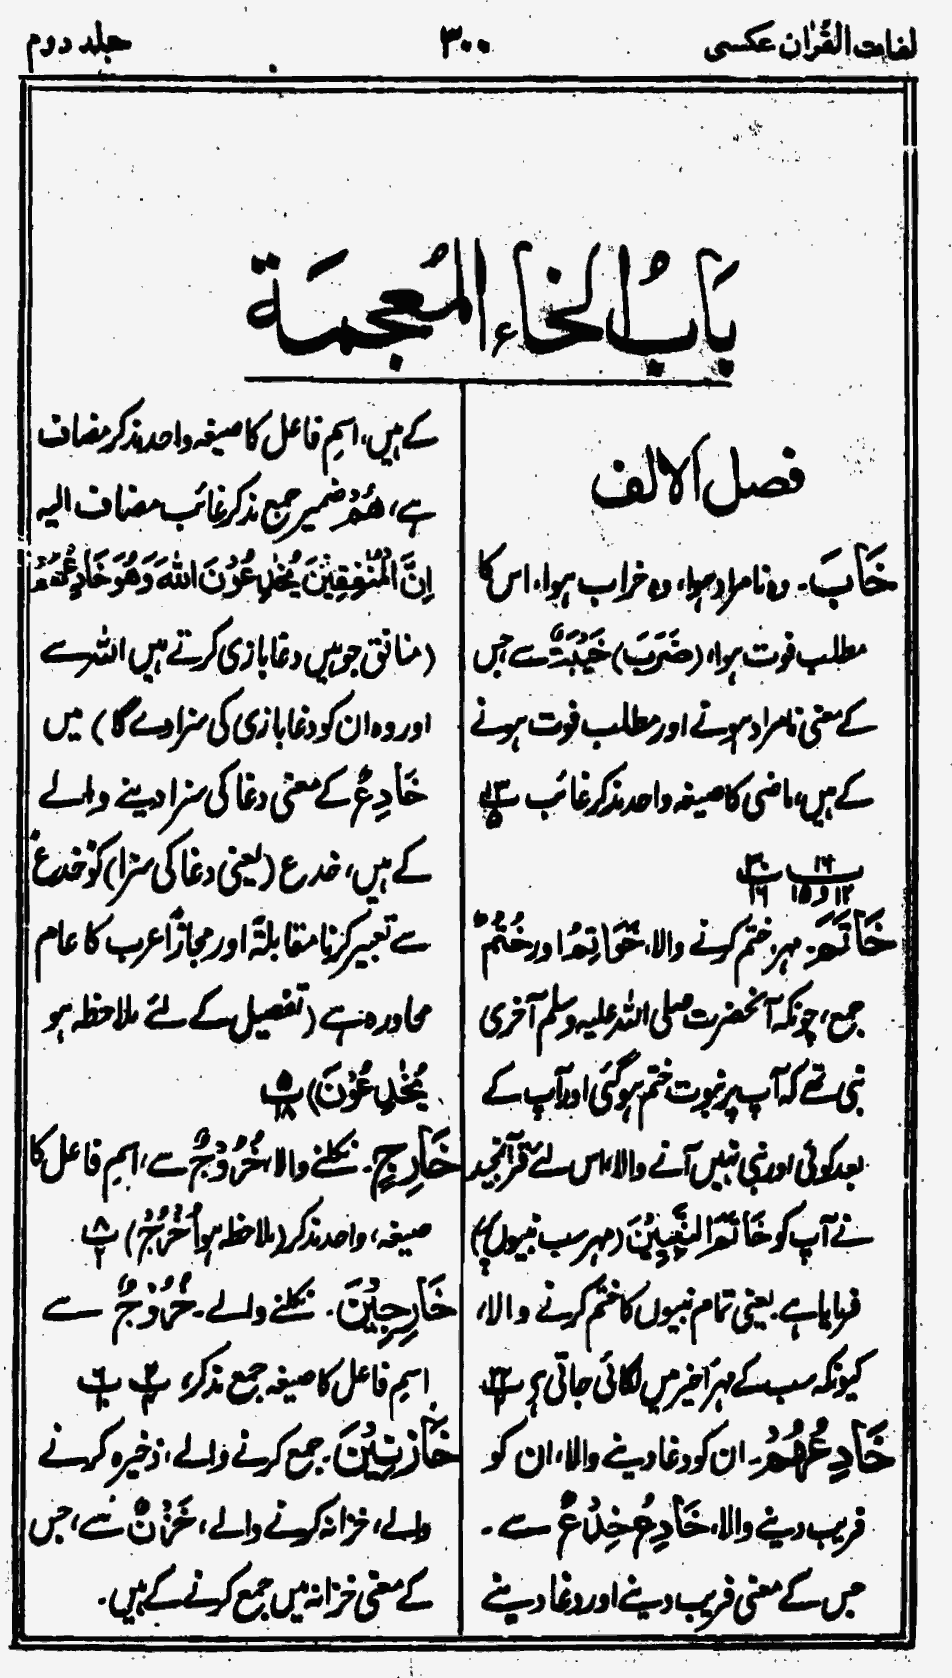 لغات القرآن عکسی
۳۰۰
جلد دوم
بَابُ الخاء المُعجمَة
فصل الالف
خَابَ۔ وہ نامراد ہوا، وہ خراب ہوا، اس کا
مطلب فوت ہوا، (ضَرَبَ) خَیْبَۃٌ سے جس
کے معنی نامراد ہونے اور مطلب فوت ہونے
کے ہیں، ماضی کا صیغہ واحد مذکر غائب پ ۱۳ ۵
پ ۱۶ ۱۲ و ۱۵ پ ۳۰ ۱۶
خَاتَمَ۔ مہر، ختم کرنے والا، خَوَاتِمُ اور خُتُمٌ
جمع، چونکہ آنحضرت صلی اللہ علیہ وسلم آخری
نبی تھے کہ آپ پر نبوت ختم ہو گئی اور آپ کے
بعد کوئی اور نبی نہیں آنے والا، اس لئے قرآن مجید
نے آپ کو خَاتَمَ النَّبِیّٖنَ (مہر سب نبیوں پر)
فرمایا ہے۔ یعنی تمام نبیوں کا ختم کرنے والا،
کیونکہ سب کے مہر آخر میں لگائی جاتی ہے پ ۲۲
خَادِعُهُمْ۔ ان کو دغا دینے والا، ان کو
فریب دینے والا، خَادِعٌ خِدْعٌ سے۔
جس کے معنی فریب دینے اور دغا دینے
کے ہیں، اسمِ فاعل کا صیغہ واحد مذکر مضاف
ہے، هُمْ ضمیر جمع مذکر غائب مضاف الیہ
اِنَّ الْمُنٰفِقِيْنَ يُخٰدِعُوْنَ اللّٰهَ وَهُوَ خَادِعُهُمْ
(منافق جو ہیں دغابازی کرتے ہیں اللہ سے
اور وہ ان کو دغابازی کی سزا دے گا) میں
خَادِعٌ کے معنی دغا کی سزا دینے والے
کے ہیں، خدع (یعنی دغا کی سزا) کو خدعٌ
سے تعبیر کرنا مقابلۃً اور مجازًا عرب کا عام
محاورہ ہے (تفصیل کے لئے ملاحظہ ہو
يُخٰدِعُوْنَ) پ ۵ ۱۸
خَارِجٍ۔ نکلنے والا، خُرُوْجٌ سے، اسمِ فاعل کا
صیغہ، واحد مذکر (ملاحظہ ہو اُخْرُجْ) پ ۸ ۲
خَارِجِيْنَ۔ نکلنے والے۔ خُرُوْجٌ سے
اسمِ فاعل کا صیغہ جمع مذکر، پ ۲ پ ۶
خَازِنِيْنَ۔ جمع کرنے والے، ذخیرہ کرنے
والے، خزانہ کرنے والے، خَزْنٌ سے، جس
کے معنی خزانہ میں جمع کرنے کے ہیں۔